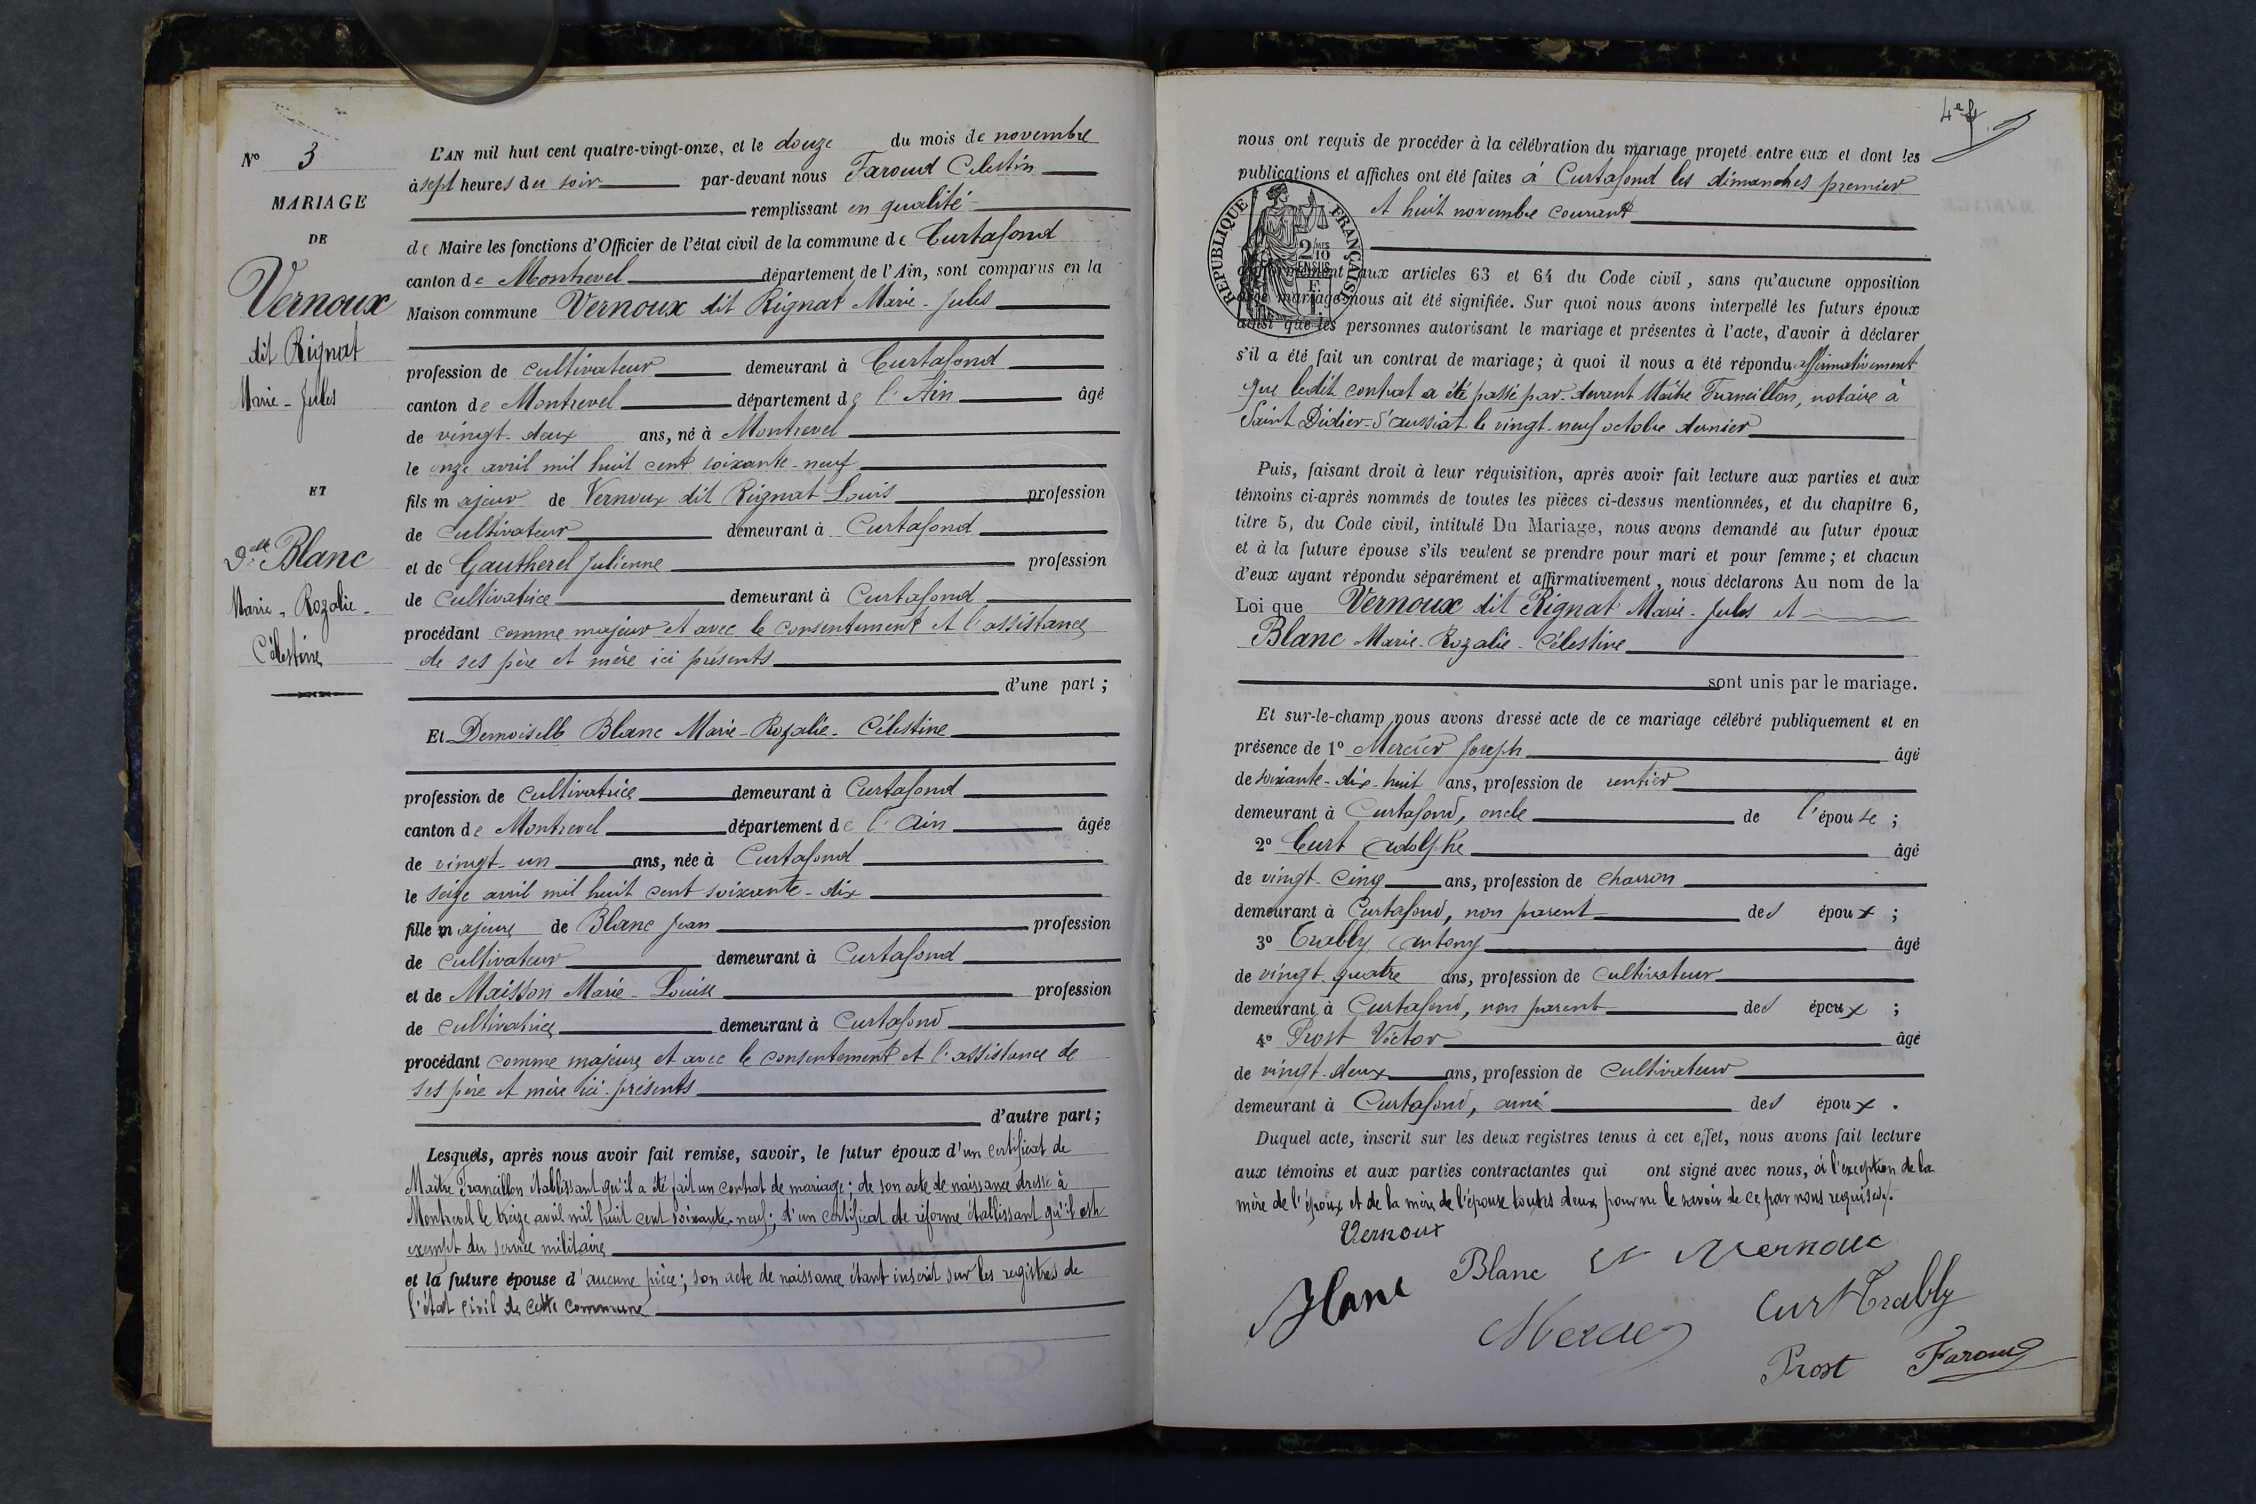 N° 3
MARIAGE
DE
Vernoux
dit Rignat
Marie-Jules
ET
Dlle Blanc
Marie-Rozalie-
Célestine
L'AN mil huit cent quatre-vingt-onze, et le douze du mois de novembre
à sept heures du soir par-devant nous Faroud Célestin
remplissant en qualité
de Maire les fonctions d'Officier de l'état civil de la commune de Curtafond
canton de Montrevel département de l'Ain, sont comparus en la
Maison commune Vernoux dit Rignat Marie-Jules
profession de cultivateur demeurant à Curtafond
canton de Montrevel département de l'Ain âgé
de vingt-deux ans, né à Montrevel
le onze avril mil huit cent soixante-neuf
fils majeur de Vernoux dit Rignat Louis profession
de cultivateur demeurant à Curtafond
et de Gautherel Julienne profession
de cultivatrice demeurant à Curtafond
procédant comme majeur et avec le consentement et l'assistance
de ses père et mère ici présents
d'une part;
Et Demoiselle Blanc Marie-Rozalie-Célestine
profession de cultivatrice demeurant à Curtafond
canton de Montrevel département de l'Ain âgée
de vingt-un ans, née à Curtafond
le seize avril mil huit cent soixante-dix
fille majeure de Blanc Jean profession
de cultivateur demeurant à Curtafond
et de Maisson Marie-Louise profession
de cultivatrice demeurant à Curtafond
procédant comme majeure et avec le consentement et l'assistance de
ses père et mère ici présents
d'autre part;
Lesquels, après nous avoir fait remise, savoir, le futur époux d'un certificat de
Maître Francillon établissant qu'il a été fait un contrat de mariage; de son acte de naissance dressé à
Montrevel le treize avril mil huit cent soixante-neuf; d'un certificat de réforme établissant qu'il est
exempt du service militaire
et la future épouse d'aucune pièce; son acte de naissance étant inscrit sur les registres de
l'état civil de cette commune
4e f
nous ont requis de procéder à la célébration du mariage projeté entre eux et dont les
publications et affiches ont été faites à Curtafond les dimanches premier
et huit novembre courant
RÉPUBLIQUE FRANÇAISE
2/10 EN SUS
1 F
conformément aux articles 63 et 64 du Code civil, sans qu'aucune opposition
audit mariage nous ait été signifiée. Sur quoi nous avons interpellé les futurs époux
ainsi que les personnes autorisant le mariage et présentes à l'acte, d'avoir à déclarer
s'il a été fait un contrat de mariage; à quoi il nous a été répondu affirmativement
que ledit contrat a été passé par-devant Maître Francillon, notaire à
Saint Didier-d'aussiat le vingt-neuf octobre dernier
Puis, faisant droit à leur réquisition, après avoir fait lecture aux parties et aux
témoins ci-après nommés de toutes les pièces ci-dessus mentionnées, et du chapitre 6,
titre 5, du Code civil, intitulé Du Mariage, nous avons demandé au futur époux
et à la future épouse s'ils veulent se prendre pour mari et pour femme; et chacun
d'eux ayant répondu séparément et affirmativement, nous déclarons Au nom de la
Loi que Vernoux dit Rignat Marie-Jules et
Blanc Marie-Rozalie-Célestine
sont unis par le mariage.
Et sur-le-champ nous avons dressé acte de ce mariage célébré publiquement et en
présence de 1° Mercier Joseph âgé
de soixante-dix-huit ans, profession de rentier
demeurant à Curtafond, oncle de l'épouse;
2° Curt Adolphe âgé
de vingt-cinq ans, profession de charron
demeurant à Curtafond, non parent des époux;
3° Trably Antony âgé
de vingt-quatre ans, profession de cultivateur
demeurant à Curtafond, non parent des époux;
4° Prost Victor âgé
de vingt-deux ans, profession de cultivateur
demeurant à Curtafond, ami des époux.
Duquel acte, inscrit sur les deux registres tenus à cet effet, nous avons fait lecture
aux témoins et aux parties contractantes qui ont signé avec nous, à l'exception de la
mère de l'époux et de la mère de l'épouse toutes deux pour ne le savoir de ce par nous requises.
Vernoux
Blanc
Vernoux
Blanc
Curt
Trably
Mercier
Prost
Faroud